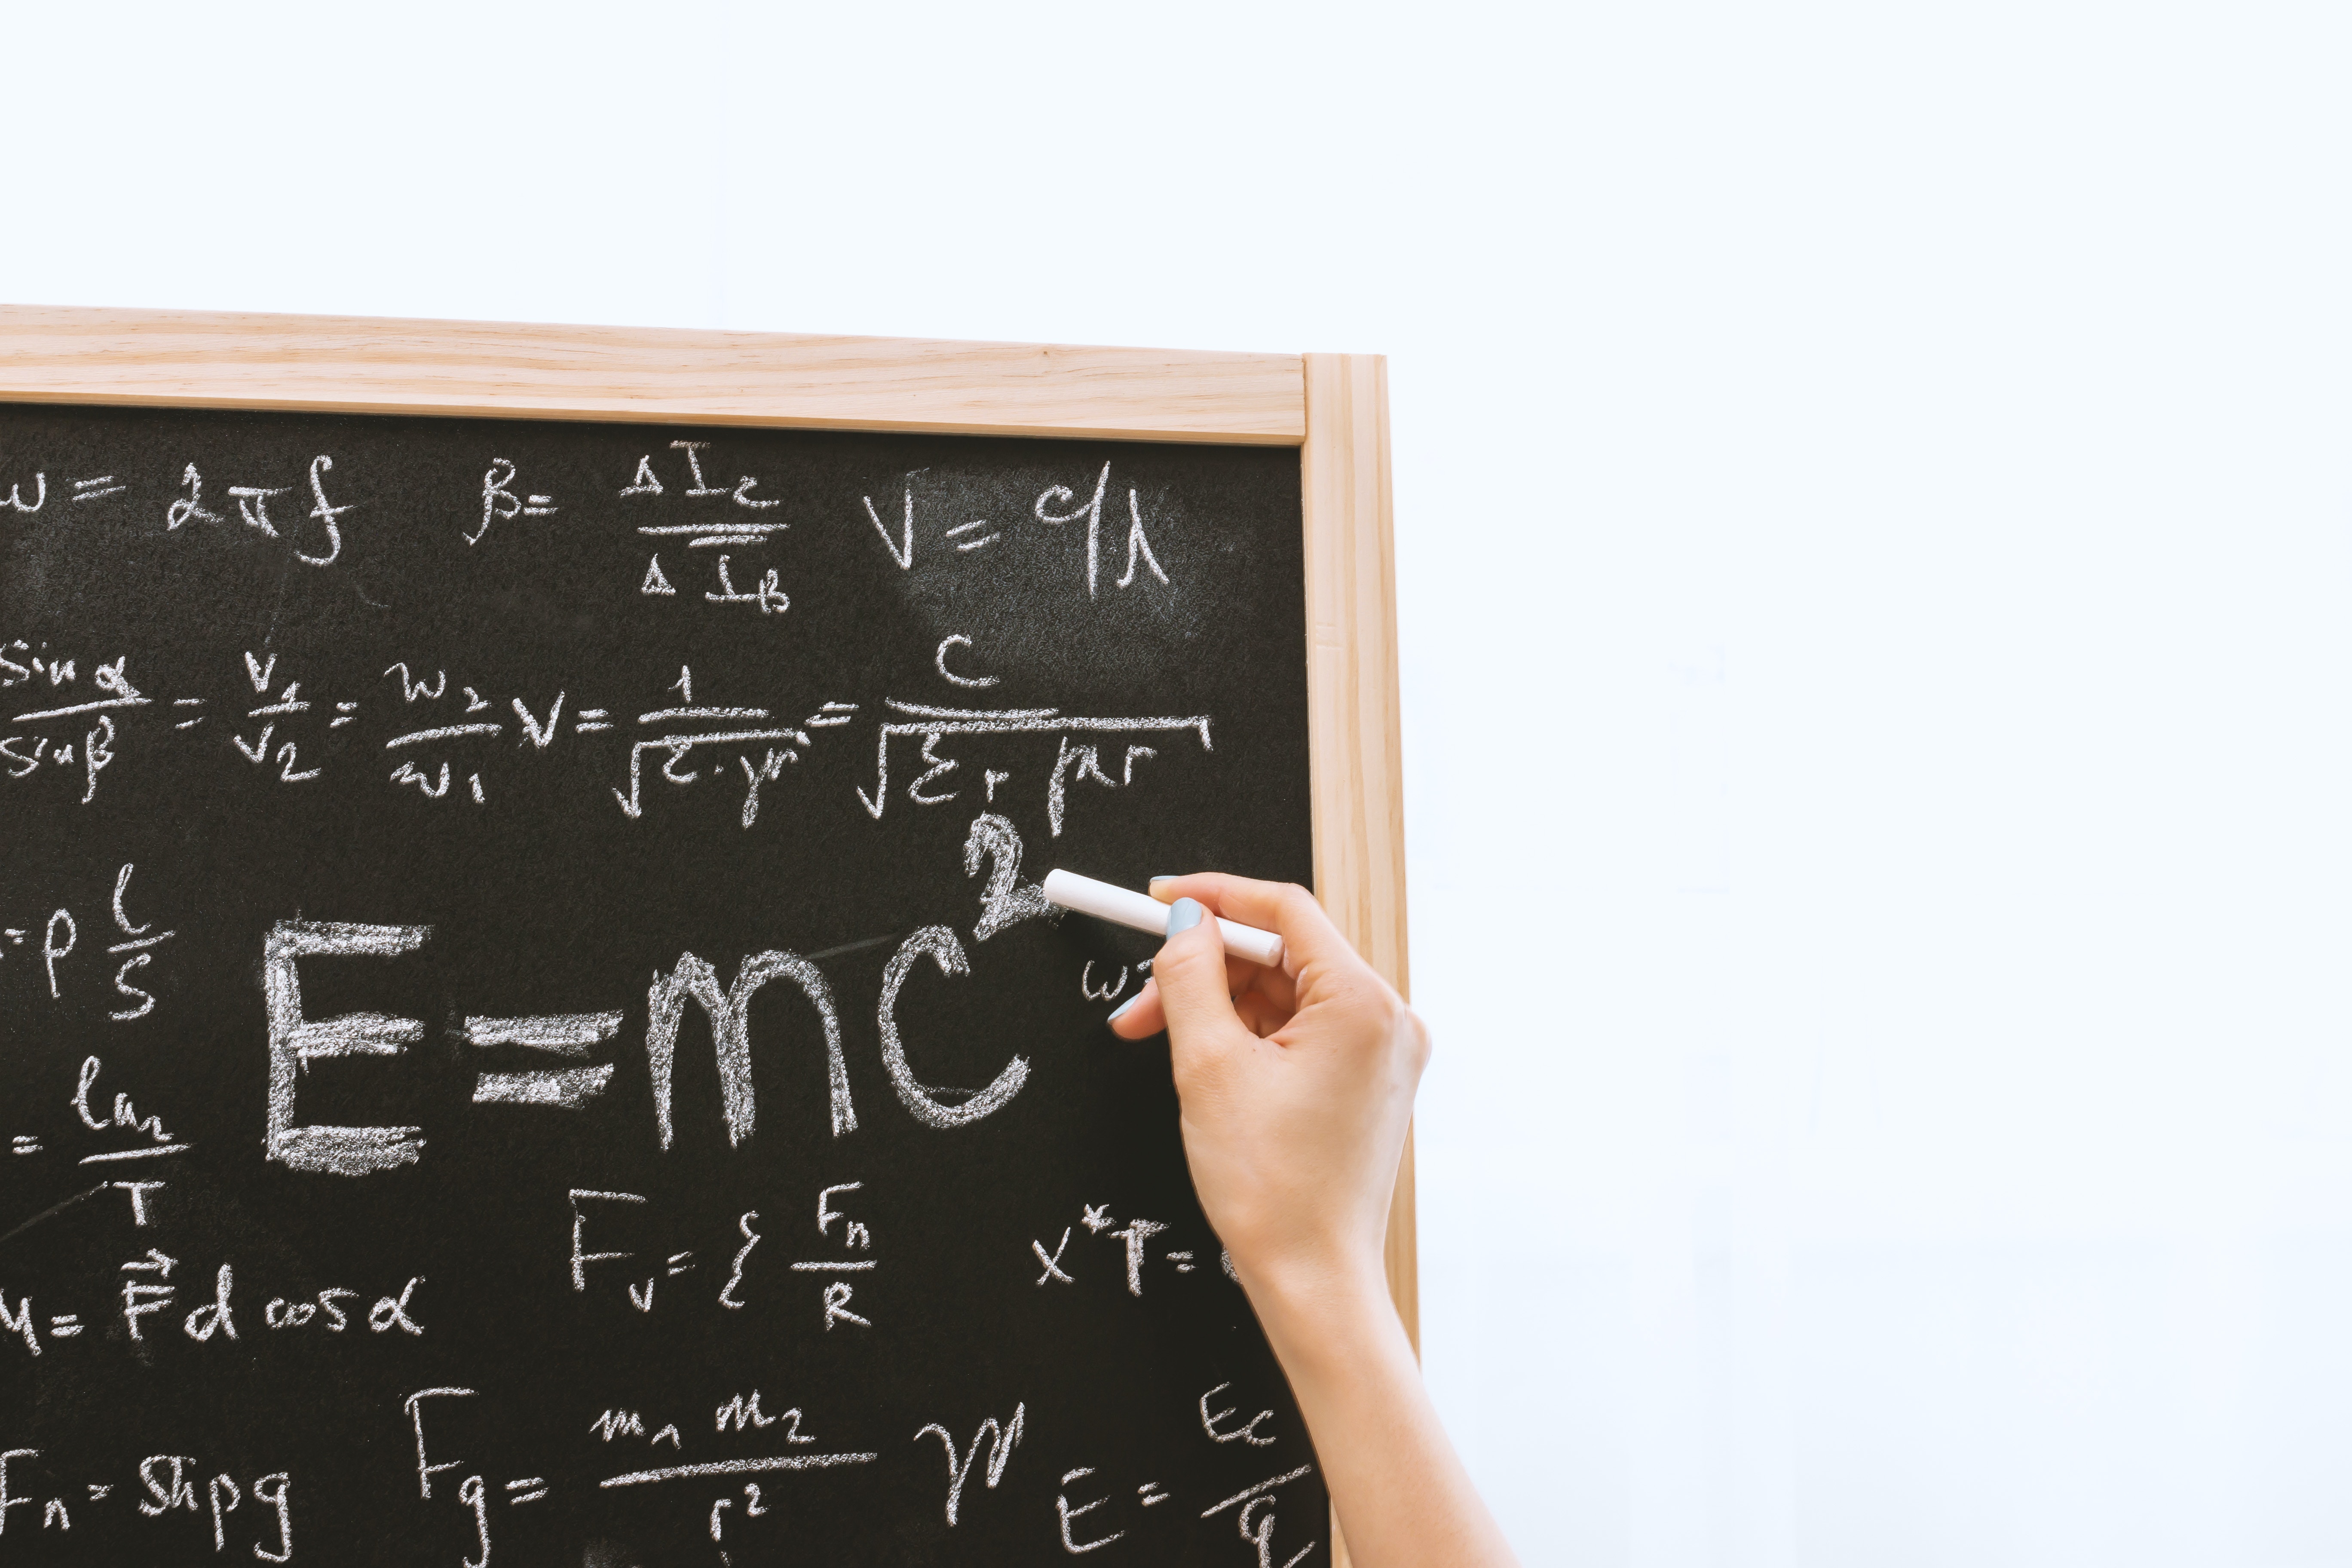 ω = 2πf β = ΔI_C / ΔI_B V = c/λ
sin α / sin β = v₁ / v₂ = w₂ / w₁ V = 1 / √(ε · μ) = c / √(εr μr)
= ρ l / S
E = mc²
ω =
= ln2 / T
F_v = { F_n / R
x*T =
= F⃗ d cos α
F_n = Shρg F_g = m₁ m₂ / r² E = E_C / q